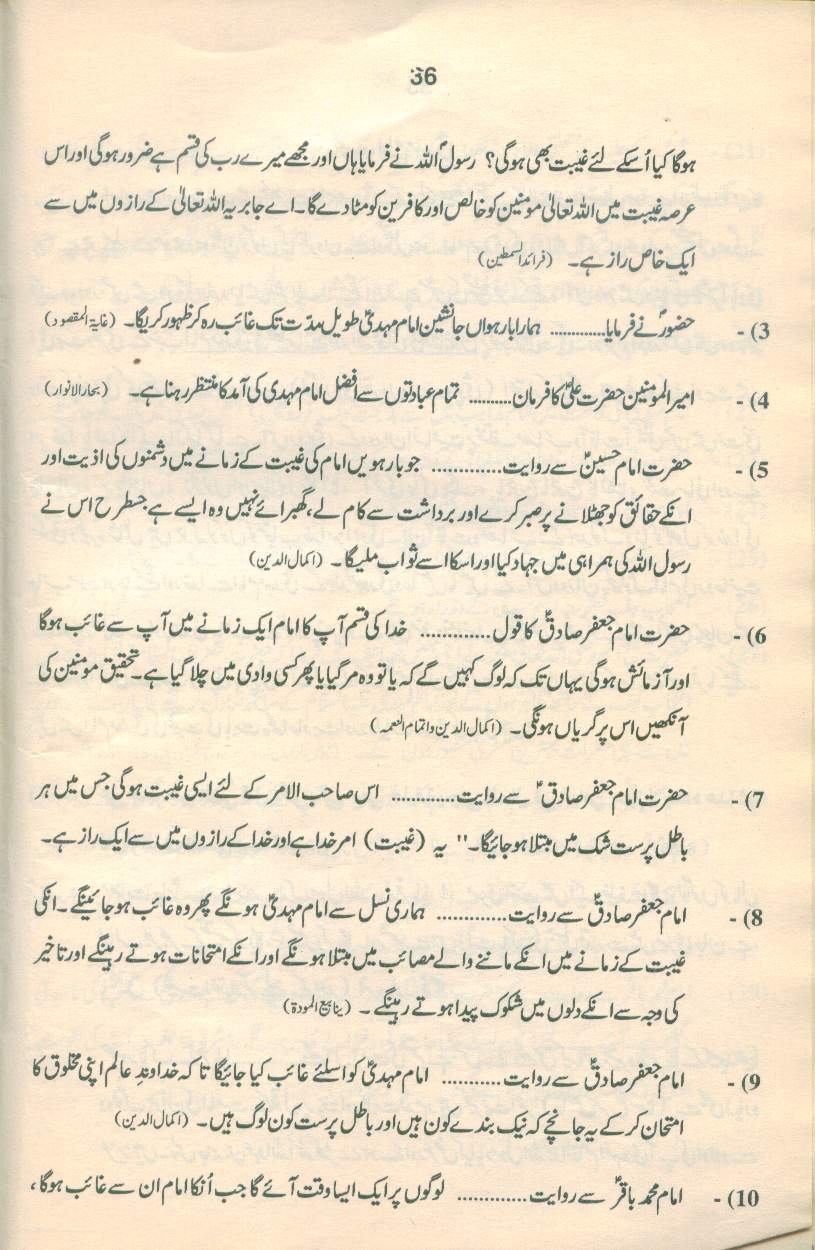 36
ہوگا کیا اُسکے لئے غیبت بھی ہوگی؟ رسولؐ اللہ نے فرمایا ہاں اور مجھے میرے رب کی قسم ہے ضرور ہوگی اور اس
عرصہ غیبت میں اللہ تعالیٰ مومنین کو خالص اور کافرین کو مٹا دے گا۔ اے جابر یہ اللہ تعالیٰ کے رازوں میں سے
ایک خاص راز ہے۔ (فرائد السمطین)
3) - حضورؐ نے فرمایا............ ہمارا بارہواں جانشین امام مہدیؑ طویل مدّت تک غائب رہ کر ظہور کریگا۔ (غایۃ المقصود)
4) - امیر المؤمنین حضرت علیؑ کا فرمان......... تمام عبادتوں سے افضل امام مہدی کی آمد کا منتظر رہنا ہے۔ (بحار الانوار)
5) - حضرت امام حسینؑ سے روایت............ جو بارہویں امام کی غیبت کے زمانے میں دشمنوں کی اذیت اور
انکے حقائق کو جھٹلانے پر صبر کرے اور برداشت سے کام لے، گھبرائے نہیں وہ ایسے ہے جسطرح اس نے
رسول اللہ کی ہمراہی میں جہاد کیا اور اسکا اسے ثواب ملیگا۔ (اکمال الدین)
6) - حضرت امام جعفر صادقؑ کا قول............ خدا کی قسم آپ کا امام ایک زمانے میں آپ سے غائب ہوگا
اور آزمائش ہوگی یہاں تک کہ لوگ کہیں گے کہ یا تو وہ مر گیا یا پھر کسی وادی میں چلا گیا ہے۔ تحقیق مومنین کی
آنکھیں اس پر گریاں ہونگی۔ (اکمال الدین و اتمام النعمہ)
7) - حضرت امام جعفر صادقؑ سے روایت............ اس صاحب الامر کے لئے ایسی غیبت ہوگی جس میں ہر
باطل پرست شک میں مبتلا ہو جائیگا۔" یہ (غیبت) امر خدا ہے اور خدا کے رازوں میں سے ایک راز ہے۔
8) - امام جعفر صادقؑ سے روایت............ ہماری نسل سے امام مہدیؑ ہونگے پھر وہ غائب ہو جائینگے۔ انکی
غیبت کے زمانے میں انکے ماننے والے مصائب میں مبتلا ہونگے اور انکے امتحانات ہوتے رہینگے اور تاخیر
کی وجہ سے انکے دلوں میں شکوک پیدا ہوتے رہینگے۔ (ینابیع المودۃ)
9) - امام جعفر صادقؑ سے روایت.......... امام مہدیؑ کو اسلئے غائب کیا جائیگا تا کہ خداوند عالم اپنی مخلوق کا
امتحان کر کے یہ جانچے کہ نیک بندے کون ہیں اور باطل پرست کون لوگ ہیں۔ (اکمال الدین)
10) - امام محمد باقرؑ سے روایت............ لوگوں پر ایک ایسا وقت آئے گا جب اُنکا امام ان سے غائب ہوگا،